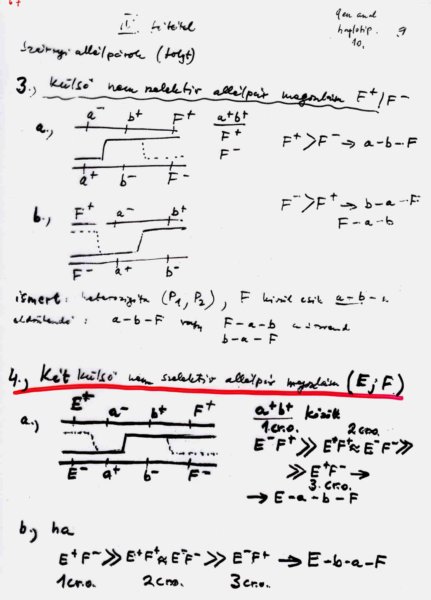 II. tétel
gen and
haplotip.
10.
9
3., Külső nem szelektív allélpár megoszlása F⁺/F⁻
a.,
a⁻ b⁺ F⁺
a⁺ b⁻ F⁻
a⁺b⁺
F⁺
F⁻
F⁺ > F⁻ → a-b-F
b.,
F⁺ a⁻ b⁺
F⁻ a⁺ b⁻
F⁻ > F⁺ → b-a-F
F-a-b
ismert: heterozigóta (P₁, P₂), F kívül esik a-b-
eldöntendő: a-b-F vagy F-a-b
b-a-F
4., Két külső nem szelektív allélpár megoszlása (E; F)
a.)
E⁺ a⁻ b⁺ F⁺
E⁻ a⁺ b⁻ F⁻
a⁺b⁺ között
1cr.o. 2cr.o.
E⁻F⁺ ≫ E⁺F⁺ ≈ E⁻F⁻ ≫
≫ E⁺F⁻ →
3.cr.o.
→ E-a-b-F
b.) ha
E⁺F⁻ ≫ E⁺F⁺ ≈ E⁻F⁻ ≫ E⁻F⁺ → E-b-a-F
1cr.o. 2cr.o. 3cr.o.